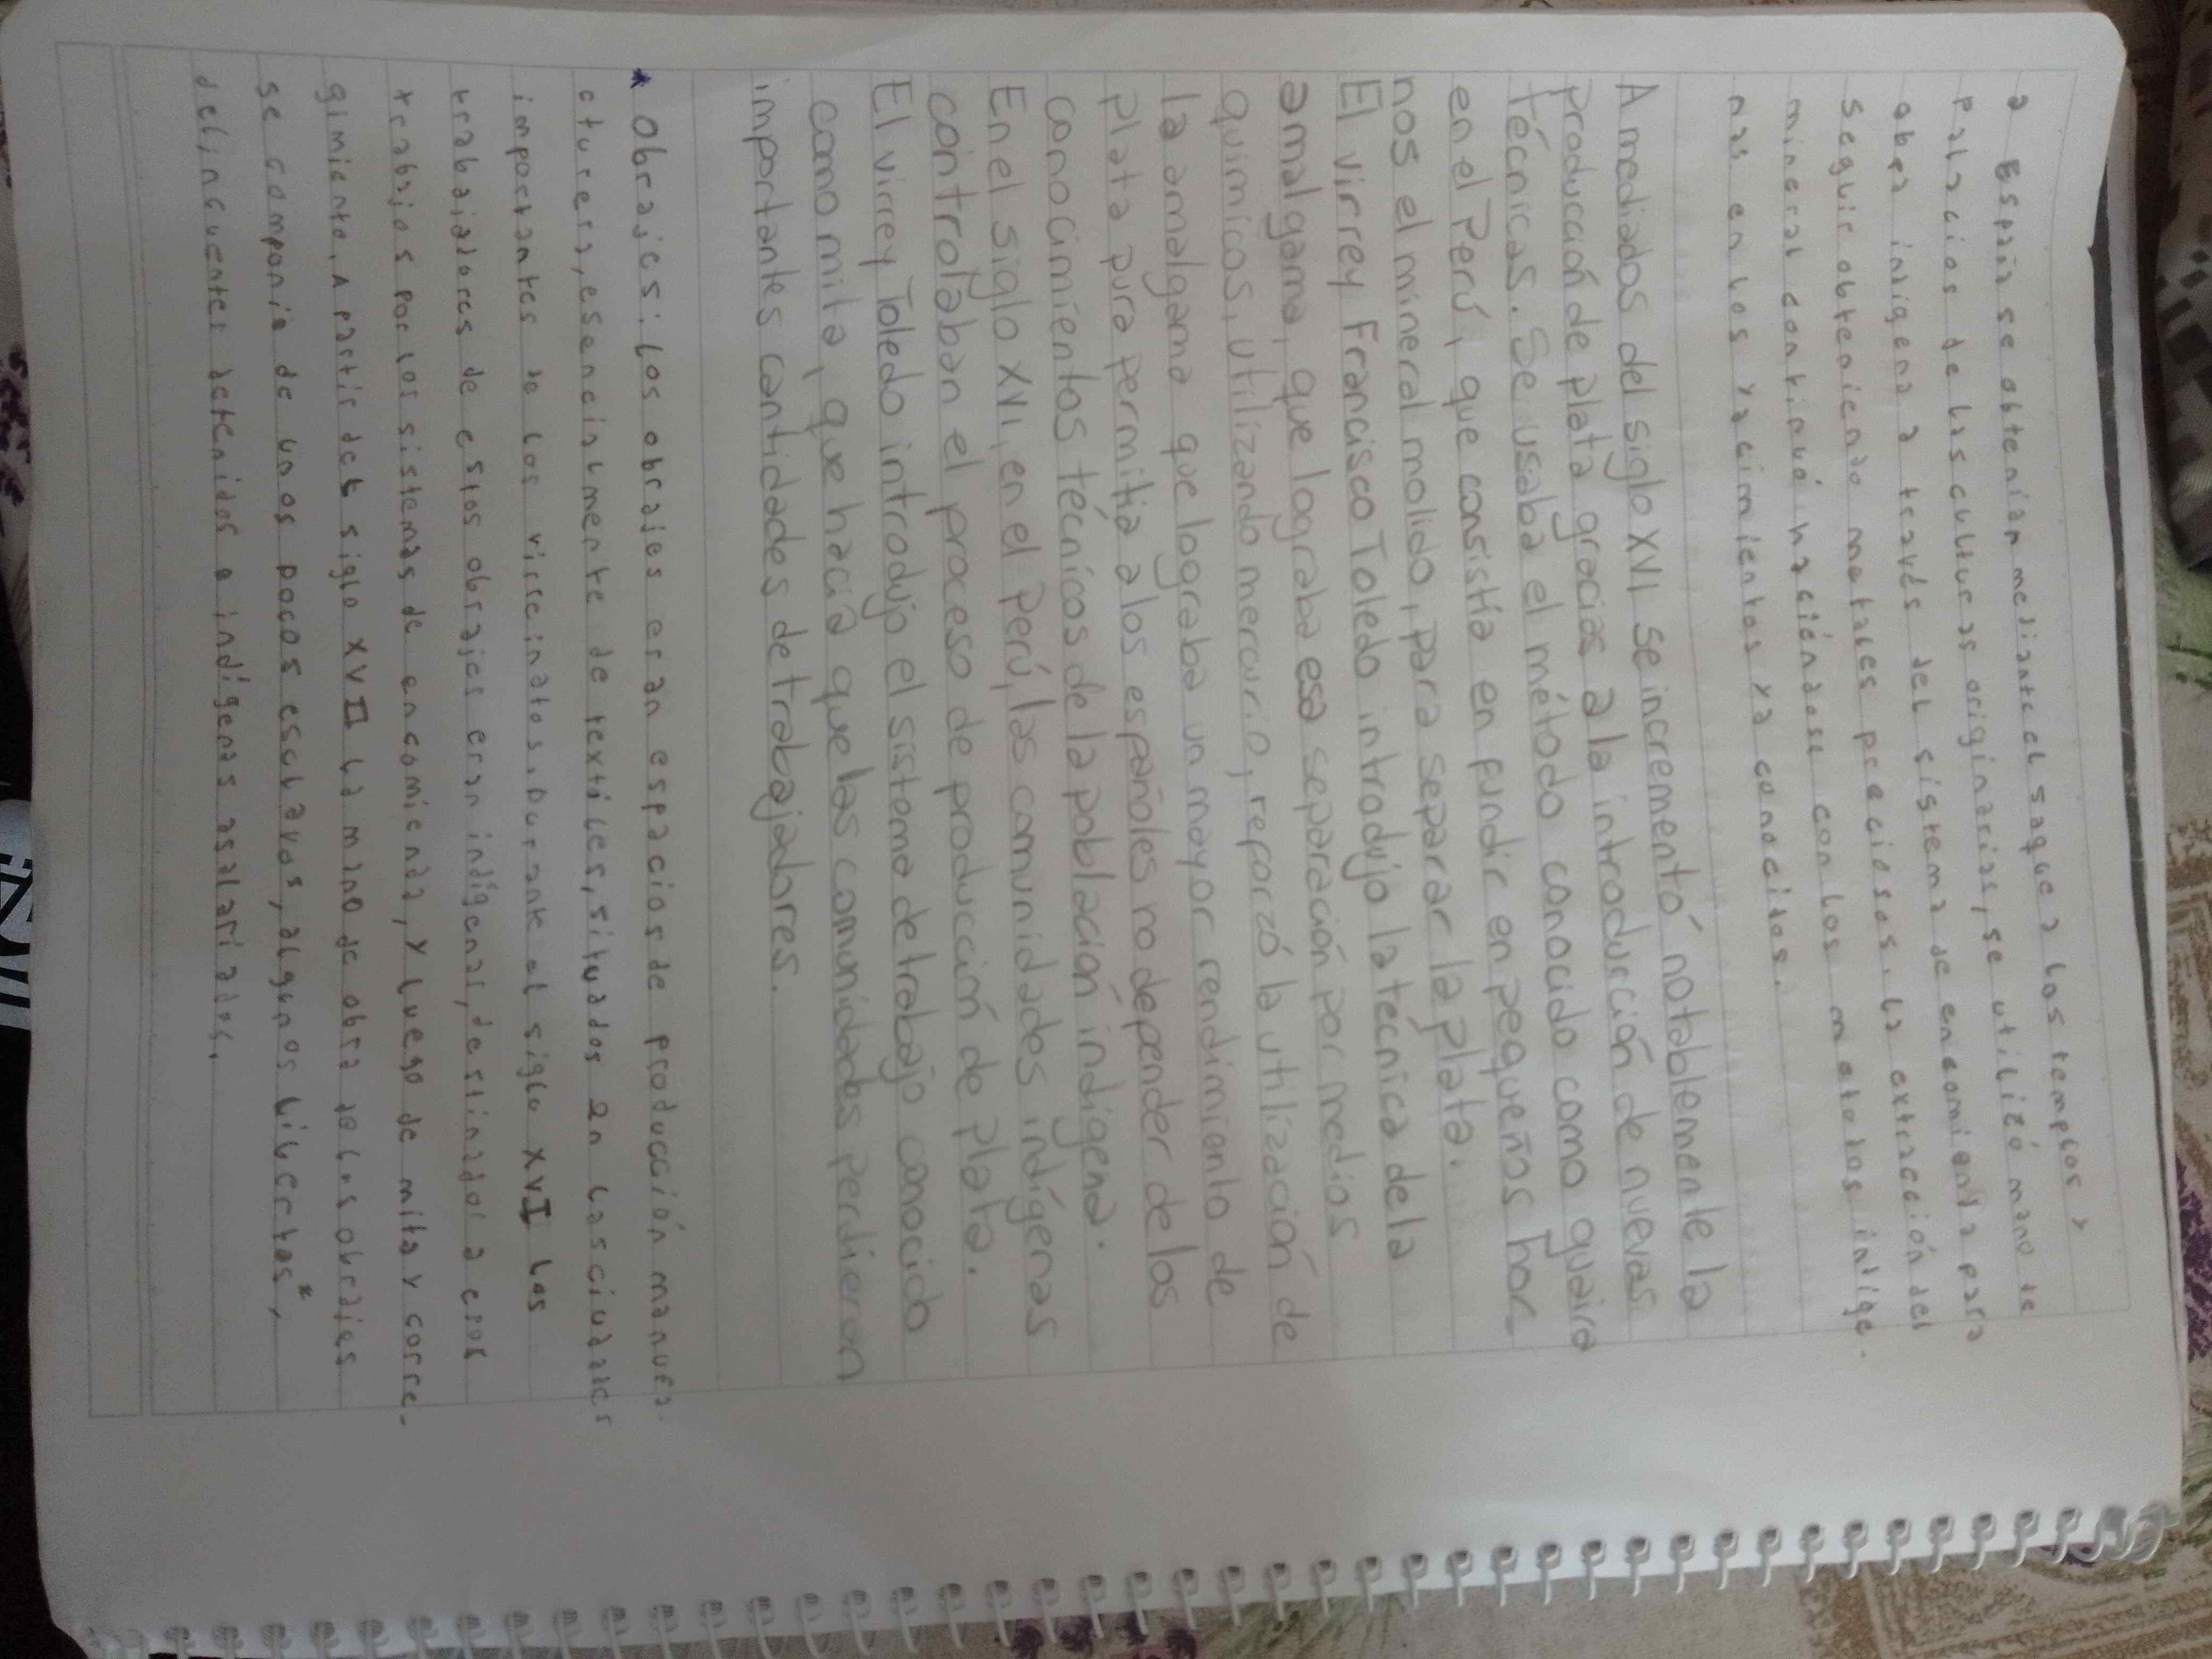 a España se obtenían mediante el saqueo a los templos y
palacios de las culturas originarias, se utilizó mano de
obra indígena a través del sistema de encomienda para
seguir obteniendo metales preciosos. La extracción del
mineral continuó haciéndose con los metodos indíge-
nas en los yacimientos ya conocidos.
A mediados del siglo XVI se incrementó notablemente la
producción de plata gracias a la introducción de nuevas
técnicas. Se usaba el método conocido como guaira
en el Perú, que consistía en fundir en pequeños hor-
nos el mineral molido, para separar la plata.
El virrey Francisco Toledo introdujo la técnica de la
amalgama, que lograba esa separación por medios
químicos, utilizando mercurio, reforzó la utilización de
la amalgama que lograba un mayor rendimiento de
plata pura permitía a los españoles no depender de los
conocimientos técnicos de la población indígena.
En el siglo XVI, en el Perú, las comunidades indígenas
controlaban el proceso de producción de plata.
El virrey Toledo introdujo el sistema de trabajo conocido
como mita, que hacia que las comunidades perdieron
importantes cantidades de trabajadores.
* Obrajes: los obrajes eran espacios de producción manufa-
cturera, esencialmente de textiles, situados en las ciudades
importantes de los virreinatos. Durante el siglo XVI los
trabajadores de estos obrajes eran indígenas, destinados a esos
trabajos por los sistemas de encomienda, y luego de mita y corre-
gimiento. A partir del siglo XVII la mano de obra de los obrajes
se componía de unos pocos esclavos, algunos libertos*,
delincuentes detenidos e indígenas asalariados.